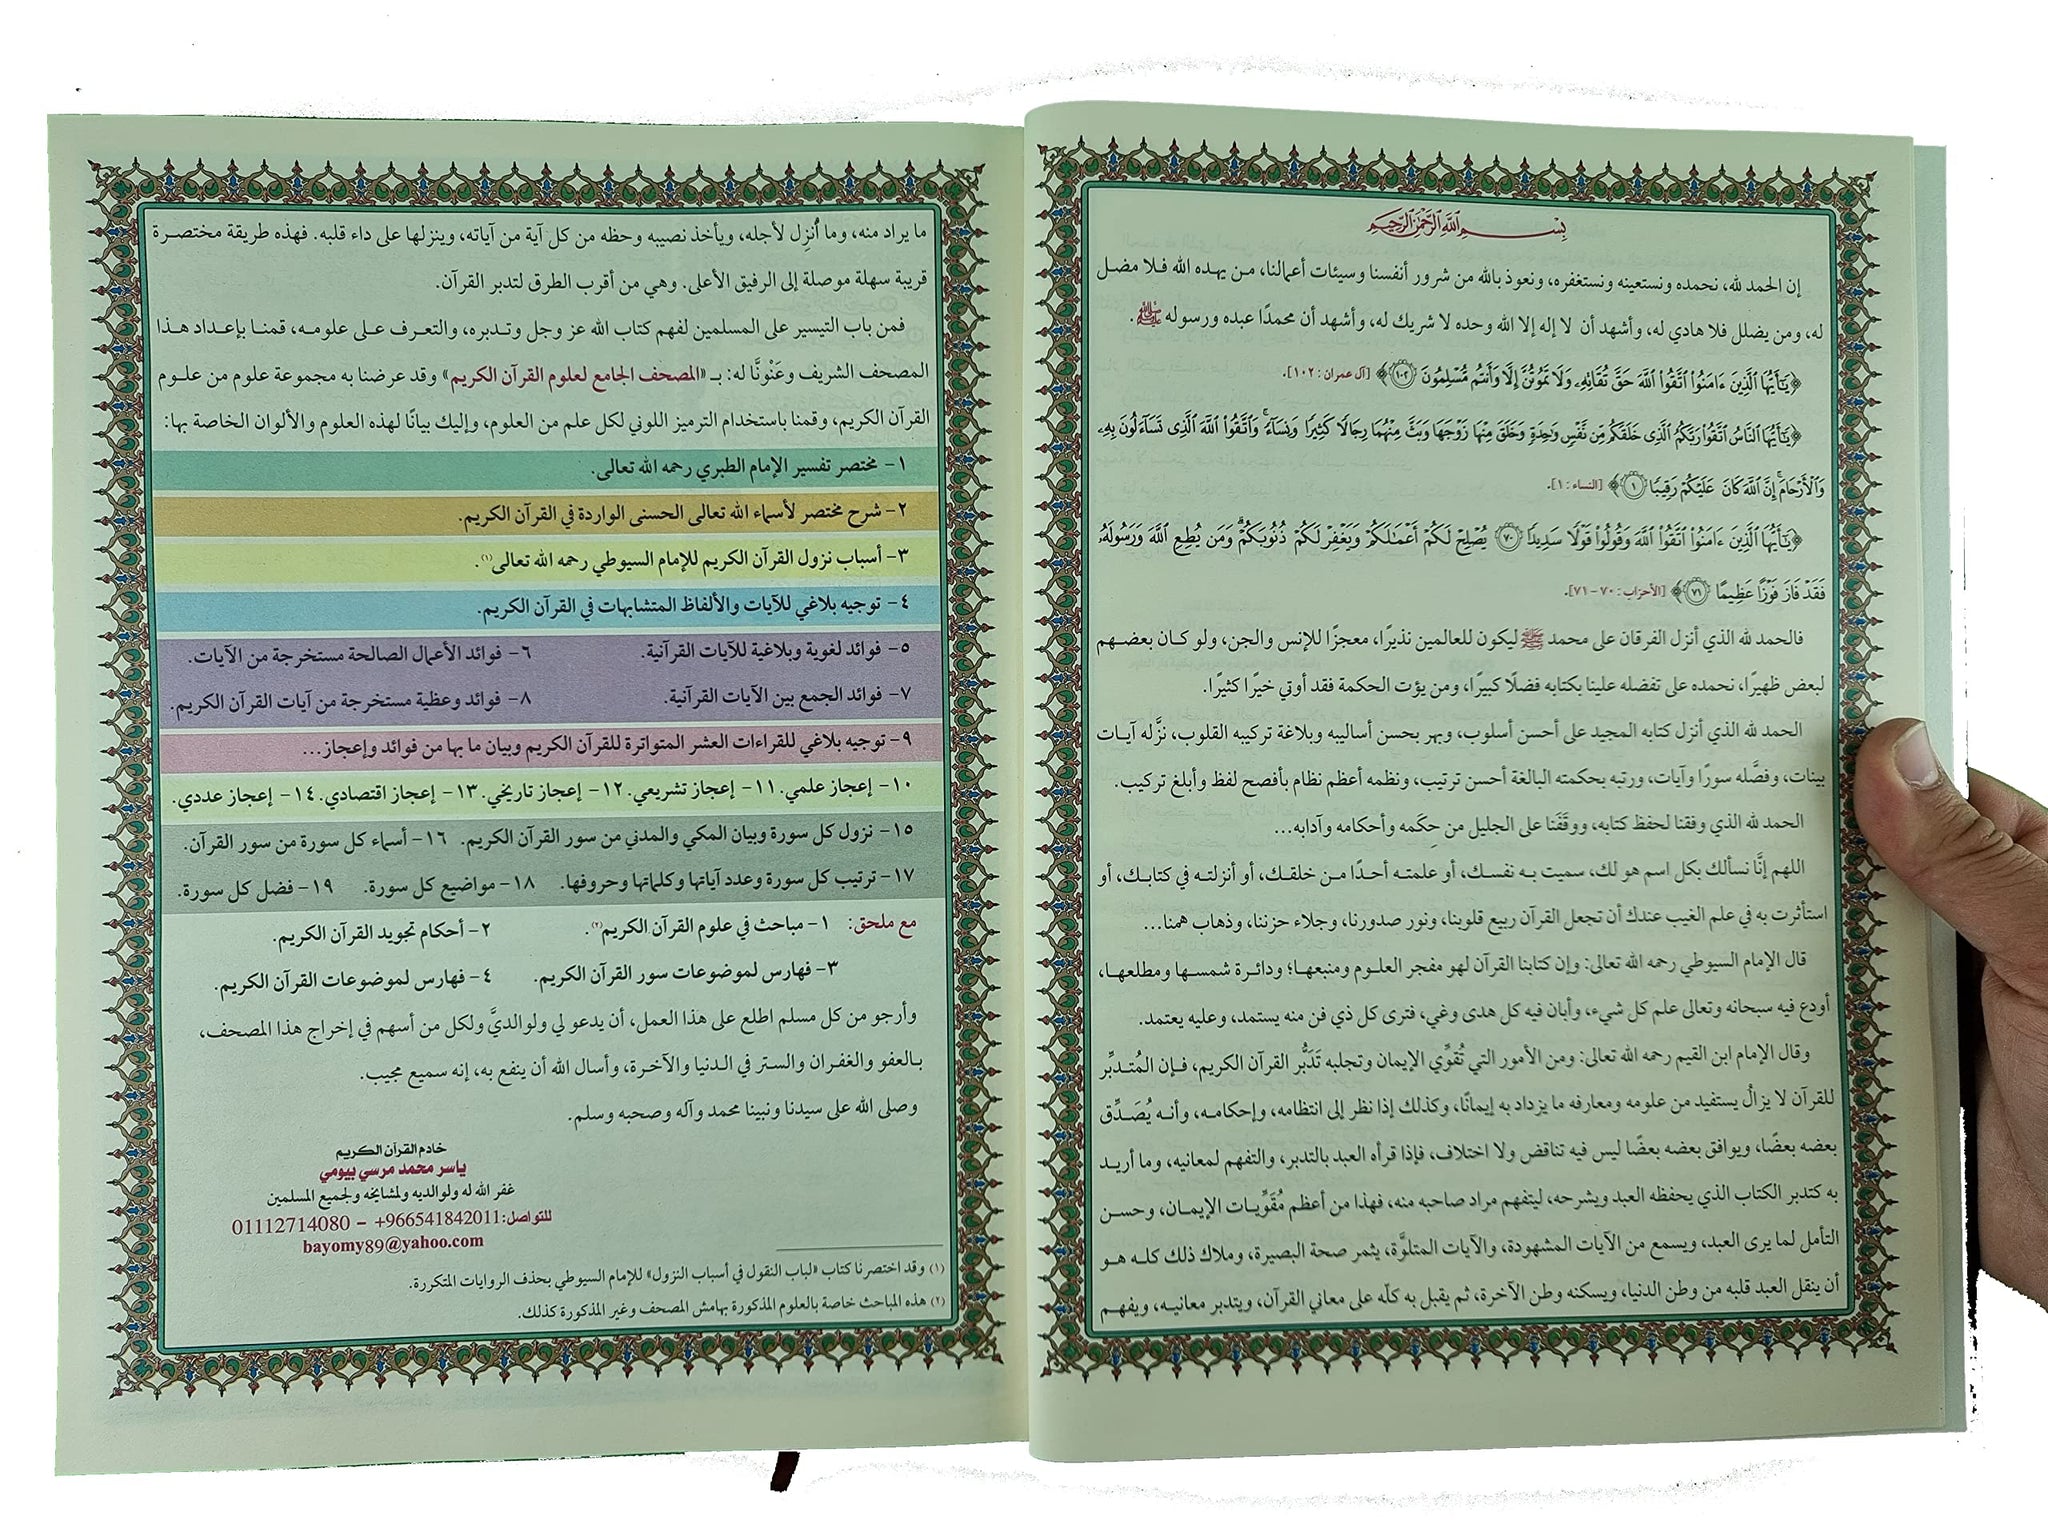 بِسْمِ ٱللَّهِ ٱلرَّحْمَٰنِ ٱلرَّحِيمِ
إن الحمد لله، نحمده ونستعينه ونستغفره، ونعوذ بالله من شرور أنفسنا وسيئات أعمالنا، من يهده الله فلا مضل
له، ومن يضلل فلا هادي له، وأشهد أن لا إله إلا الله وحده لا شريك له، وأشهد أن محمدًا عبده ورسوله ﷺ.
﴿يَٰٓأَيُّهَا ٱلَّذِينَ ءَامَنُوا۟ ٱتَّقُوا۟ ٱللَّهَ حَقَّ تُقَاتِهِۦ وَلَا تَمُوتُنَّ إِلَّا وَأَنتُم مُّسْلِمُونَ ١٠٢﴾ [آل عمران: ١٠٢].
﴿يَٰٓأَيُّهَا ٱلنَّاسُ ٱتَّقُوا۟ رَبَّكُمُ ٱلَّذِى خَلَقَكُم مِّن نَّفْسٍ وَٰحِدَةٍ وَخَلَقَ مِنْهَا زَوْجَهَا وَبَثَّ مِنْهُمَا رِجَالًا كَثِيرًا وَنِسَآءً ۚ وَٱتَّقُوا۟ ٱللَّهَ ٱلَّذِى تَسَآءَلُونَ بِهِۦ
وَٱلْأَرْحَامَ ۚ إِنَّ ٱللَّهَ كَانَ عَلَيْكُمْ رَقِيبًا ١﴾ [النساء: ١].
﴿يَٰٓأَيُّهَا ٱلَّذِينَ ءَامَنُوا۟ ٱتَّقُوا۟ ٱللَّهَ وَقُولُوا۟ قَوْلًا سَدِيدًا ٧٠ يُصْلِحْ لَكُمْ أَعْمَٰلَكُمْ وَيَغْفِرْ لَكُمْ ذُنُوبَكُمْ ۗ وَمَن يُطِعِ ٱللَّهَ وَرَسُولَهُۥ
فَقَدْ فَازَ فَوْزًا عَظِيمًا ٧١﴾ [الأحزاب: ٧٠-٧١].
فالحمد لله الذي أنزل الفرقان على محمد ﷺ ليكون للعالمين نذيرًا، معجزًا للإنس والجن، ولو كان بعضهم
لبعض ظهيرًا، نحمده على تفضله علينا بكتابه فضلًا كبيرًا، ومن يؤت الحكمة فقد أوتي خيرًا كثيرًا.
الحمد لله الذي أنزل كتابه المجيد على أحسن أسلوب، وبهر بحسن أساليبه وبلاغة تركيبه القلوب، نزَّله آيات
بينات، وفصَّله سورًا وآيات، ورتبه بحكمته البالغة أحسن ترتيب، ونظمه أعظم نظام بأفصح لفظ وأبلغ تركيب.
الحمد لله الذي وفقنا لحفظ كتابه، ووقَفَنا على الجليل من حِكَمه وأحكامه وآدابه...
اللهم إنَّا نسألك بكل اسم هو لك، سميت به نفسك، أو علمته أحدًا من خلقك، أو أنزلته في كتابك، أو
استأثرت به في علم الغيب عندك أن تجعل القرآن ربيع قلوبنا، ونور صدورنا، وجلاء حزننا، وذهاب همنا...
قال الإمام السيوطي رحمه الله تعالى: وإن كتابنا القرآن لهو مفجر العلوم ومنبعها؛ ودائرة شمسها ومطلعها،
أودع فيه سبحانه وتعالى علم كل شيء، وأبان فيه كل هدى وغي، فترى كل ذي فن منه يستمد، وعليه يعتمد.
وقال الإمام ابن القيم رحمه الله تعالى: ومن الأمور التي تُقوِّي الإيمان وتجلبه تَدَبُّر القرآن الكريم، فإن المُتدبِّر
للقرآن لا يزالُ يستفيد من علومه ومعارفه ما يزداد به إيمانًا، وكذلك إذا نظر إلى انتظامه، وإحكامه، وأنه يُصَدِّق
بعضه بعضًا، ويوافق بعضه بعضًا ليس فيه تناقض ولا اختلاف، فإذا قرأه العبد بالتدبر، والتفهم لمعانيه، وما أريد
به كتدبر الكتاب الذي يحفظه العبد ويشرحه، ليتفهم مراد صاحبه منه، فهذا من أعظم مُقَوِّيات الإيمان، وحسن
التأمل لما يرى العبد، ويسمع من الآيات المشهودة، والآيات المتلوَّة، يثمر صحة البصيرة، وملاك ذلك كله هو
أن ينقل العبد قلبه من وطن الدنيا، ويسكنه وطن الآخرة، ثم يقبل به كلِّه على معاني القرآن، ويتدبر معانيه، ويفهم
ما يراد منه، وما أُنزِل لأجله، ويأخذ نصيبه وحظه من كل آية من آياته، وينزلها على داء قلبه. فهذه طريقة مختصرة
قريبة سهلة موصلة إلى الرفيق الأعلى. وهي من أقرب الطرق لتدبر القرآن.
فمن باب التيسير على المسلمين لفهم كتاب الله عز وجل وتدبره، والتعرف على علومه، قمنا بإعداد هذا
المصحف الشريف وعَنْونَّا له: بـ «المصحف الجامع لعلوم القرآن الكريم» وقد عرضنا به مجموعة علوم من علوم
القرآن الكريم، وقمنا باستخدام الترميز اللوني لكل علم من العلوم، وإليك بيانًا لهذه العلوم والألوان الخاصة بها:
١- مختصر تفسير الإمام الطبري رحمه الله تعالى.
٢- شرح مختصر لأسماء الله تعالى الحسنى الواردة في القرآن الكريم.
٣- أسباب نزول القرآن الكريم للإمام السيوطي رحمه الله تعالى(١).
٤- توجيه بلاغي للآيات والألفاظ المتشابهات في القرآن الكريم.
٥- فوائد لغوية وبلاغية للآيات القرآنية. ٦- فوائد الأعمال الصالحة مستخرجة من الآيات.
٧- فوائد الجمع بين الآيات القرآنية. ٨- فوائد وعظية مستخرجة من آيات القرآن الكريم.
٩- توجيه بلاغي للقراءات العشر المتواترة للقرآن الكريم وبيان ما بها من فوائد وإعجاز...
١٠- إعجاز علمي. ١١- إعجاز تشريعي. ١٢- إعجاز تاريخي. ١٣- إعجاز اقتصادي. ١٤- إعجاز عددي.
١٥- نزول كل سورة وبيان المكي والمدني من سور القرآن الكريم. ١٦- أسماء كل سورة من سور القرآن.
١٧- ترتيب كل سورة وعدد آياتها وكلماتها وحروفها. ١٨- مواضيع كل سورة. ١٩- فضل كل سورة.
مع ملحق: ١- مباحث في علوم القرآن الكريم(٢). ٢- أحكام تجويد القرآن الكريم.
٣- فهارس لموضوعات سور القرآن الكريم. ٤- فهارس لموضوعات القرآن الكريم.
وأرجو من كل مسلم اطلع على هذا العمل، أن يدعو لي ولوالديَّ ولكل من أسهم في إخراج هذا المصحف،
بالعفو والغفران والستر في الدنيا والآخرة، وأسال الله أن ينفع به، إنه سميع مجيب.
وصلى الله على سيدنا ونبينا محمد وآله وصحبه وسلم.
خادم القرآن الكريم
ياسر محمد مرسي بيومي
غفر الله له ولوالديه ولمشايخه ولجميع المسلمين
للتواصل: 01112714080 – +966541842011
bayomy89@yahoo.com
(١) وقد اختصرنا كتاب «لباب النقول في أسباب النزول» للإمام السيوطي بحذف الروايات المتكررة.
(٢) هذه المباحث خاصة بالعلوم المذكورة بهامش المصحف وغير المذكورة كذلك.